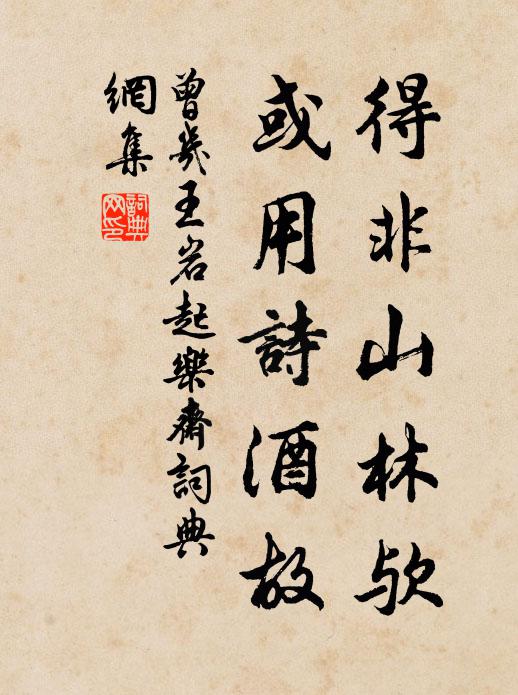 得非山林欤
或用詩酒故
曾幾王岩起樂齋詞典
網集
詞典网印